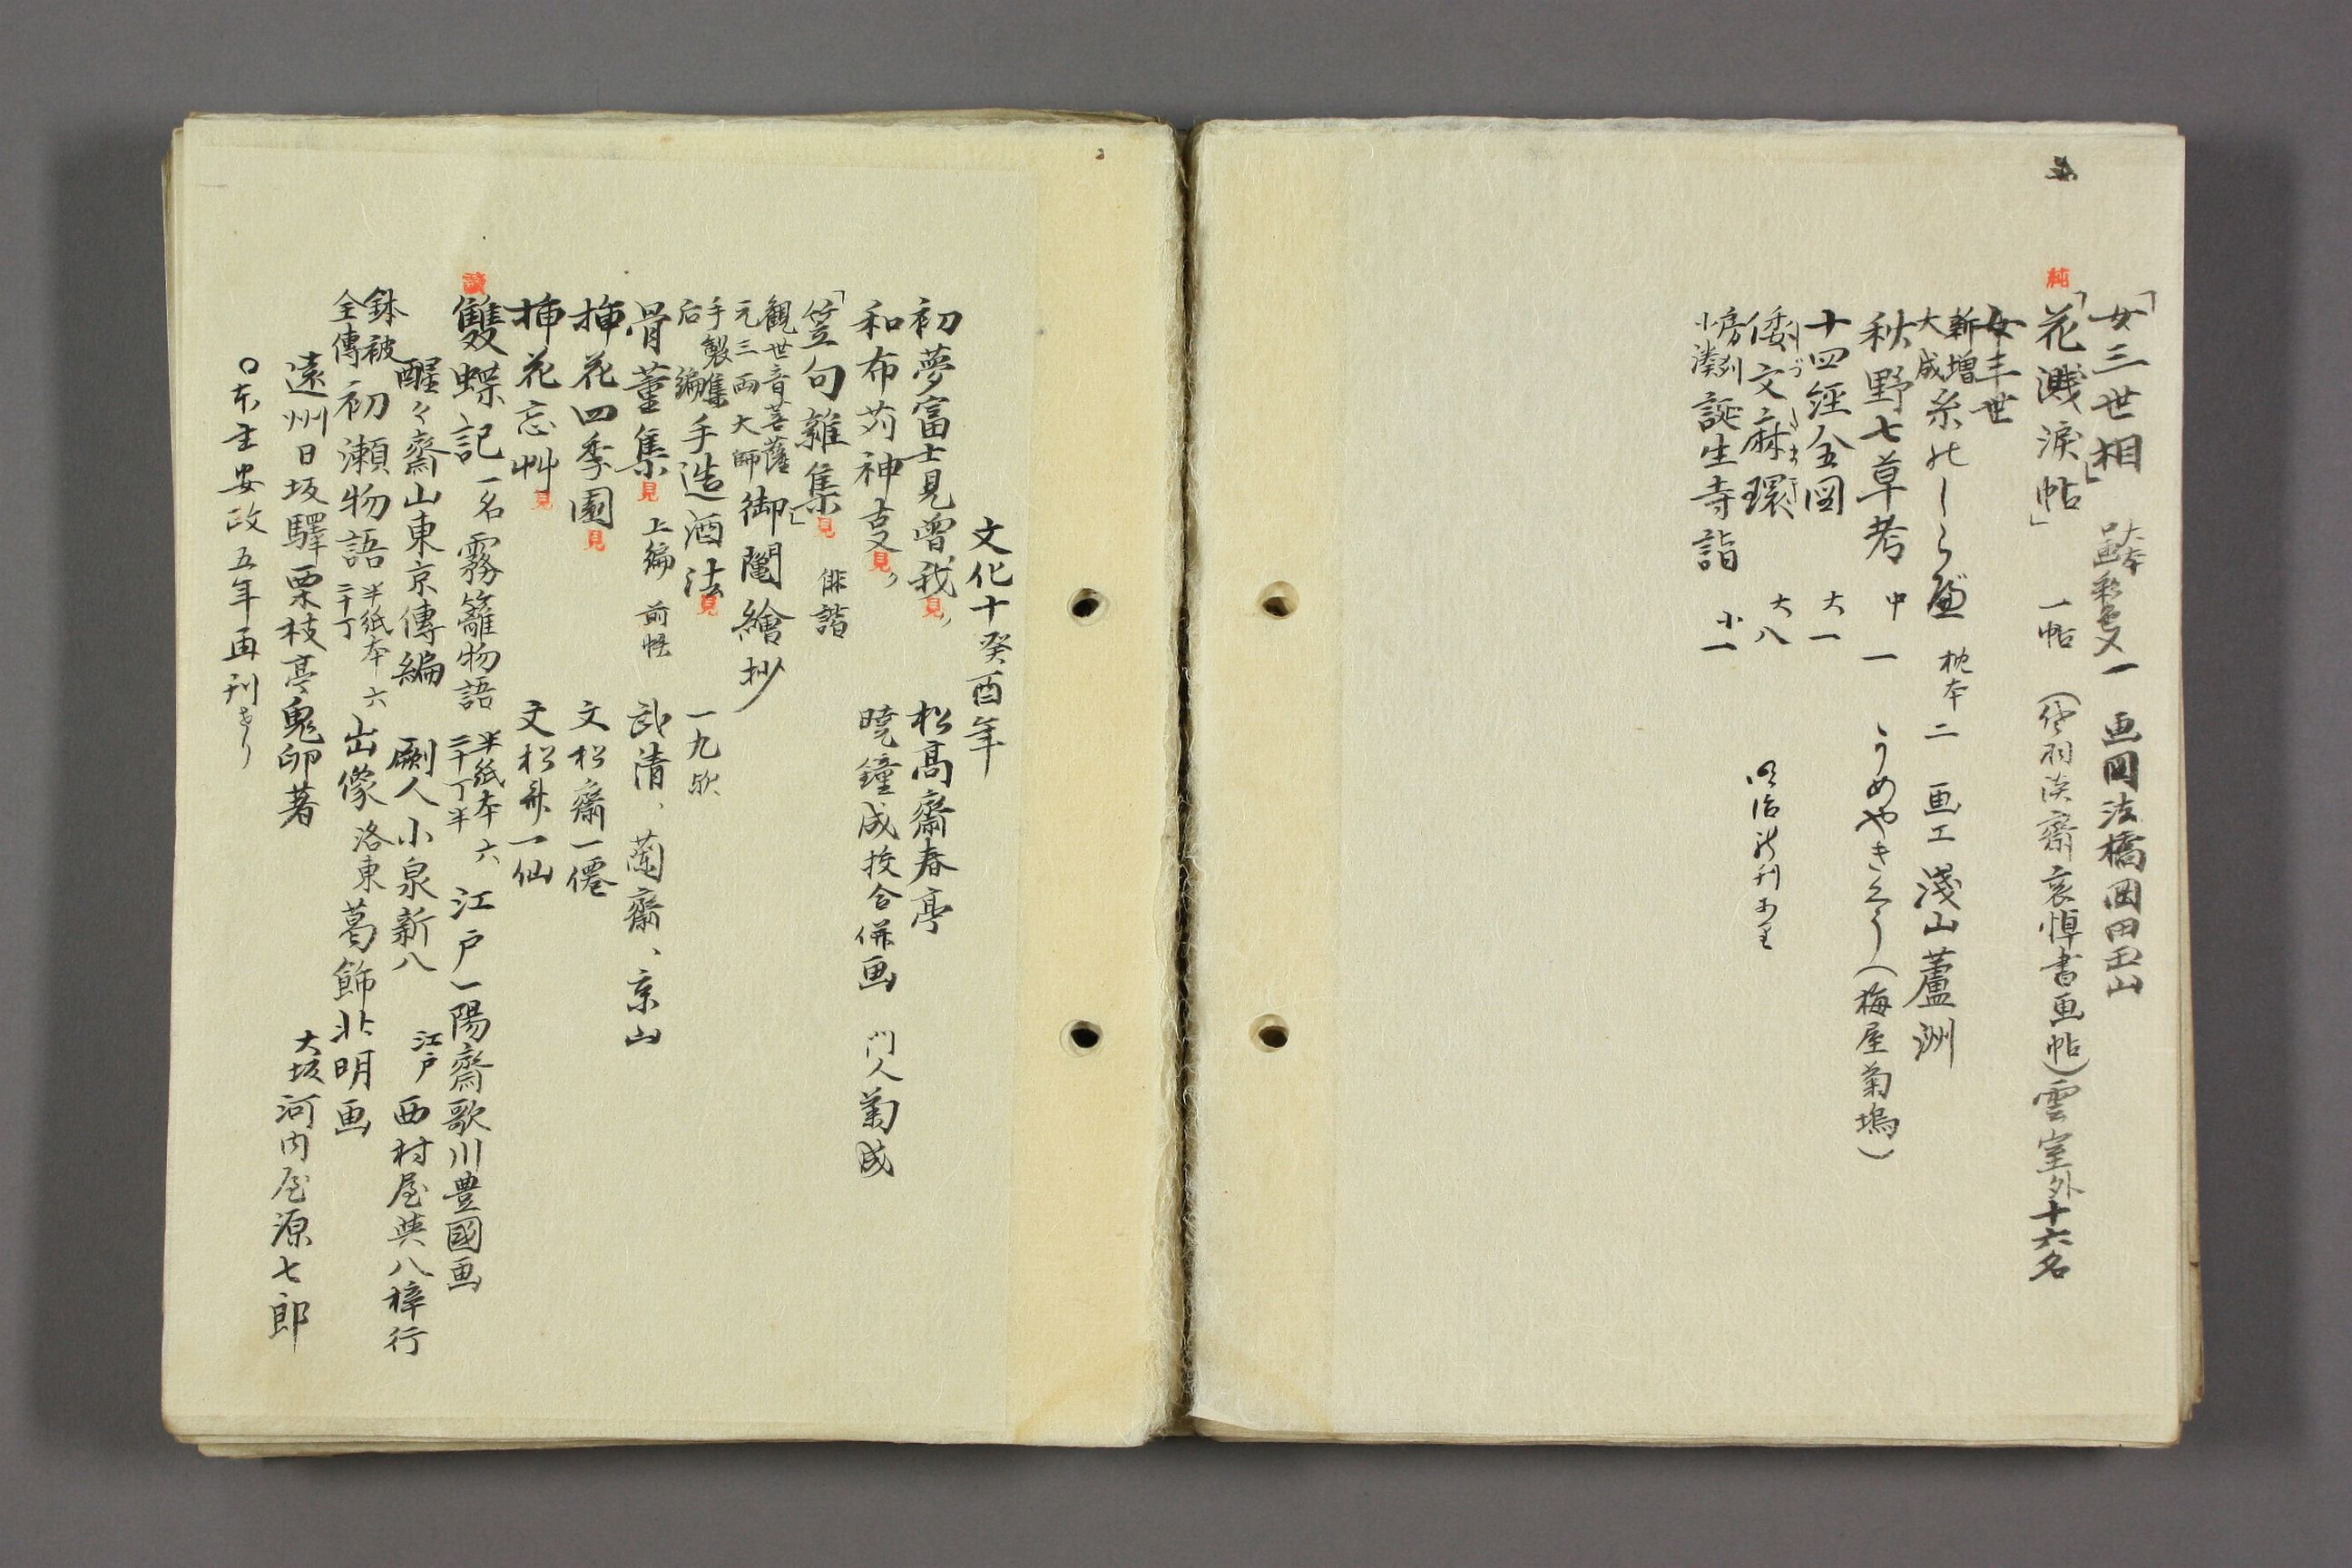 「女三世相」 大本 彩色入 一 画図法橋岡田玉山
純 「花濺涙帖」 一帖 (釧雲泉哀悼書画帖)雲室外十六名
女三世
新増 大成 糸のしらべ 枕本 二 画工 淺山蘆洲
秋野七草考 中一 うめやきくう(梅屋菊塢)
十四經全図 大一
倭文麻環 しづのをだまき 大八 明治新刊あり
房州 小湊 誕生寺詣 小一
文化十癸酉年
初夢富士見曽我 見 松髙齋春亭
和布苅神事 見 暁鐘成挍合併画 門人 菊成
「笠句雜集」 見 俳諧
観世音菩薩 元三両大師 御鬮繪抄
手製集 后編 手造酒法 見 一九
骨董集 見 上編 前帙 武清、蘭齋、京山
挿花四季園 見 文松齋一僊
挿花忘艸 見 文松斎一仙
讀 雙蝶記 一名霧籬物語 半紙本 六 二十丁半 江戸一陽齋歌川豊國画
醒々齋山東京傳編 劂人小泉新八 江戸 西村屋與八梓行
鉢被 全傳 初瀬物語 半紙本 六 二十丁 出像 洛東 葛飾北明画
遠州日坂驛栗枝亭鬼卵著 大坂 河内屋源七郎
〇本主安政五年再刊せり